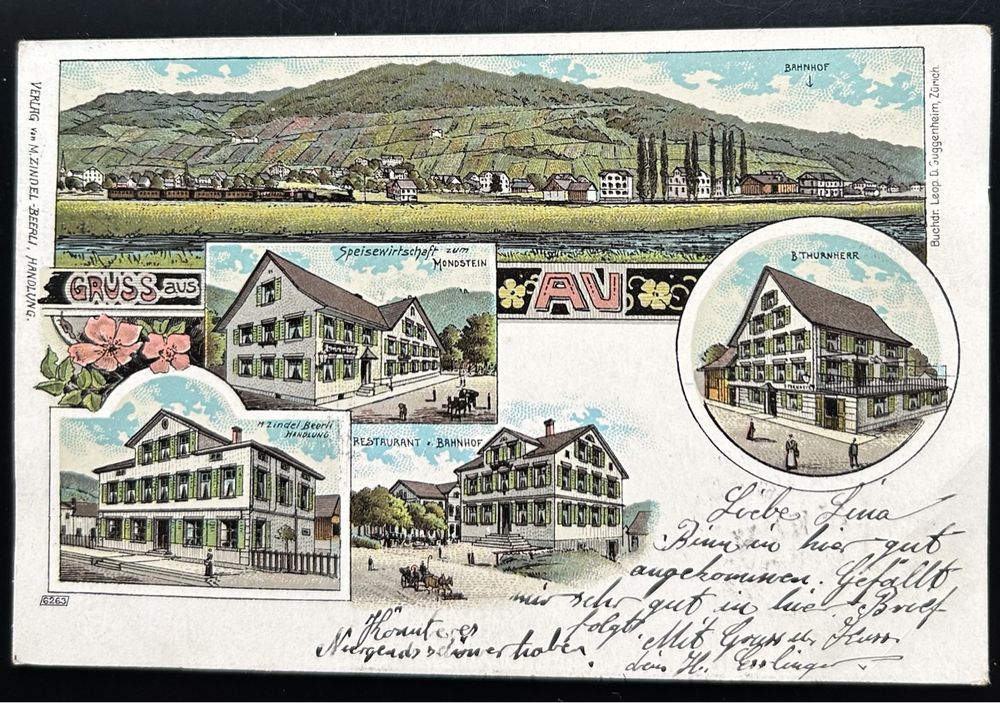 BAHNHOF
VERLAG von M. ZINDEL-BEERLI, HANDLUNG.
Buchdr. Leop. D. Guggenheim, Zürich.
Speisewirtschaft zum
MONDSTEIN
B. THURNHERR
GRUSS aus
AU
M. Zindel Beerli
HANDLUNG
RESTAURANT z. BAHNHOF
6263
Liebe Lina
Binn in hier gut
angekommen. Gefällt
mir sehr gut in hier Brief
folgt
Mit Gruss u. Kuss
dein H. Esslinger
Könnte es
Niergends schöner haben.